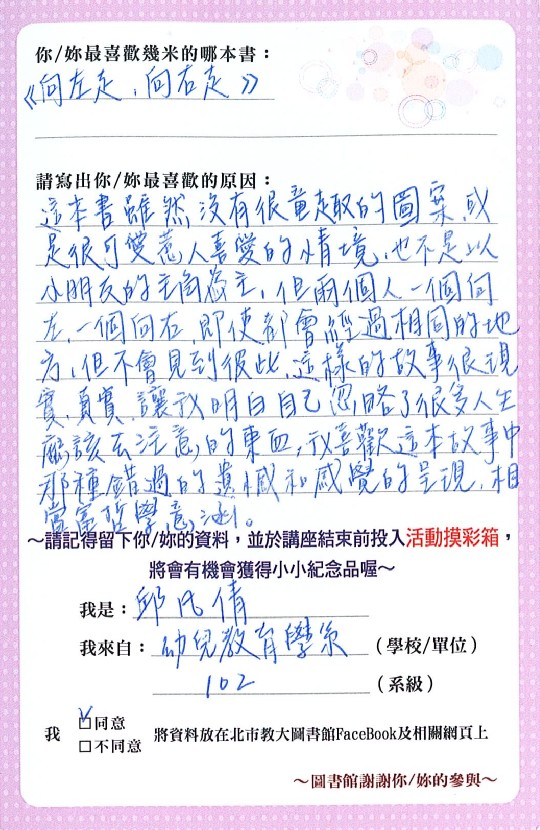 你/妳最喜歡幾米的哪本書：
《向左走，向右走》
請寫出你/妳最喜歡的原因：
這本書雖然沒有很童趣的圖案，或
是很可愛惹人喜愛的情境，也不是以
小朋友的主角為主，但兩個人一個向
左，一個向右，即使都會經過相同的地
方，但不會見到彼此，這樣的故事很現
實，真實，讓我明白自己忽略了很多人生
應該去注意的東西，我喜歡這本故事中
那種錯過的遺憾和感覺的呈現，相
當富哲學意涵。
～請記得留下你/妳的資料，並於講座結束前投入活動摸彩箱，
將會有機會獲得小小紀念品喔～
我是：邱 倩
我來自：幼兒教育學系（學校/單位）
102（系級）
我 ☑同意
□不同意 將資料放在北市教大圖書館FaceBook及相關網頁上
～圖書館謝謝你/妳的參與～